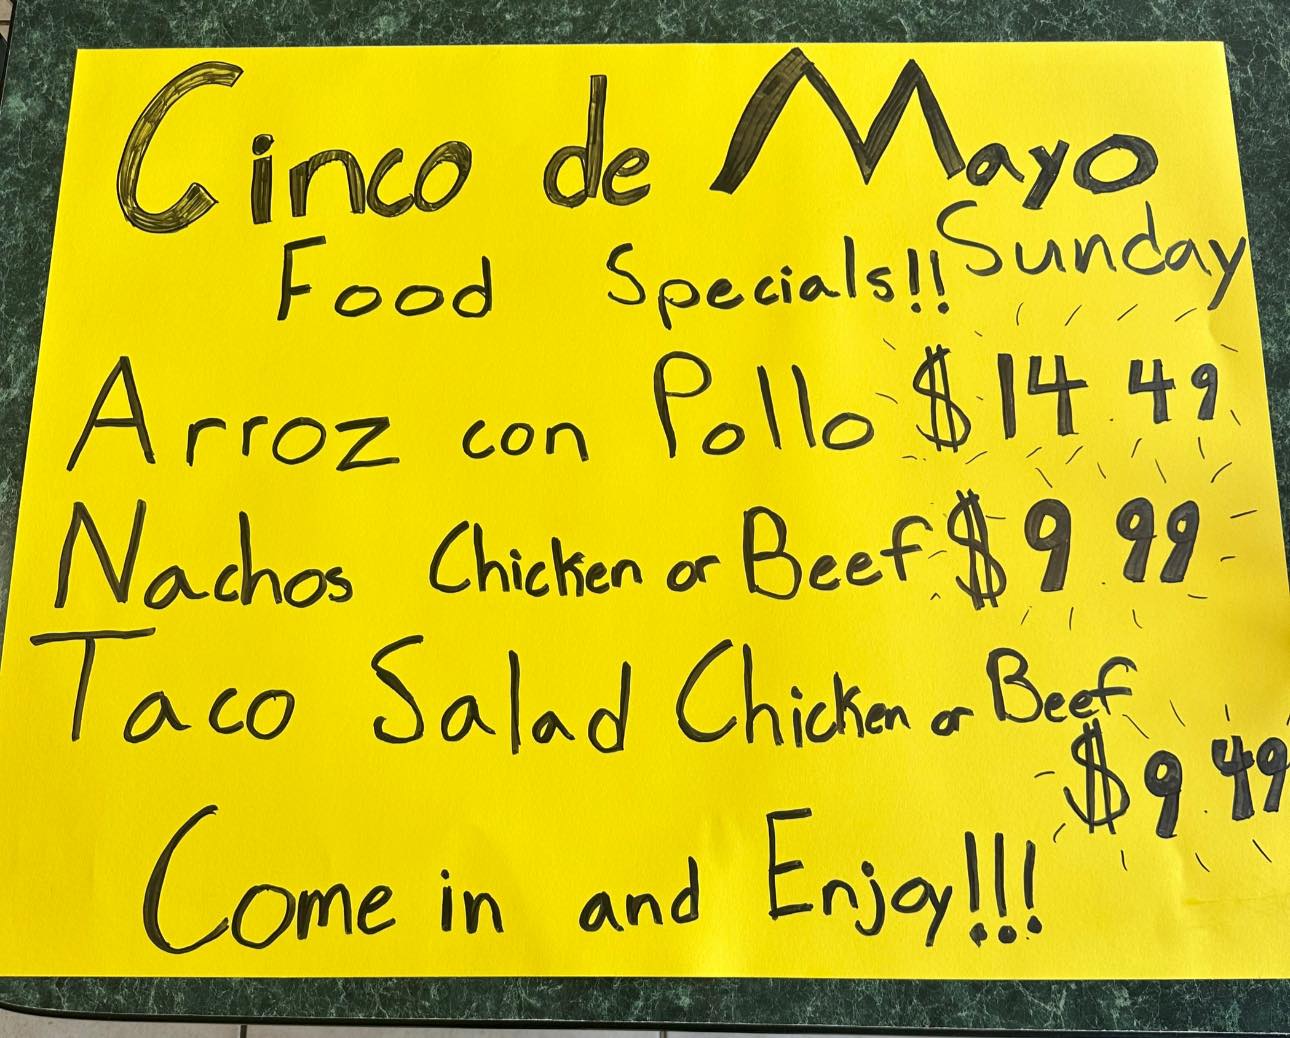 Cinco de Mayo
Food Specials!! Sunday
Arroz con Pollo $14.49
Nachos Chicken or Beef $9.99
Taco Salad Chicken or Beef
$9.49
Come in and Enjoy!!!